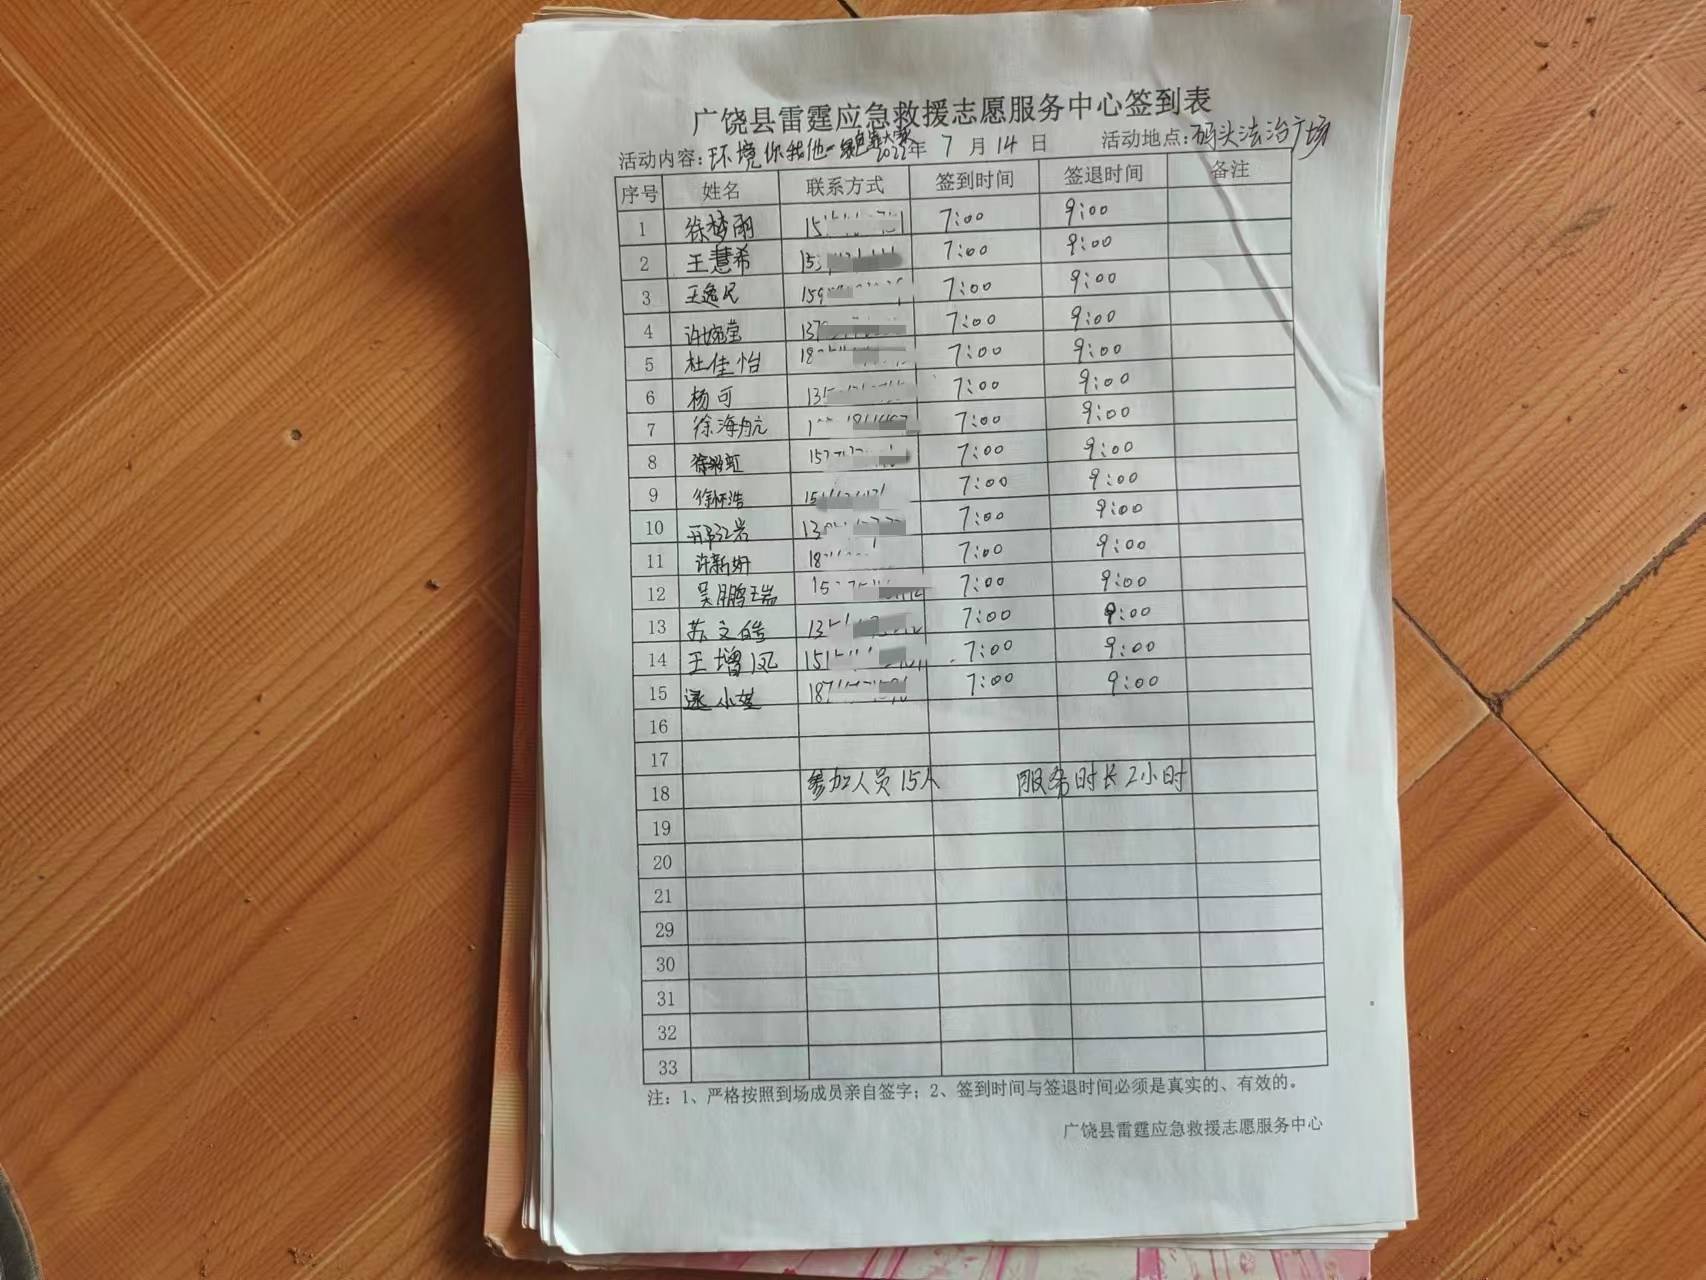 广饶县雷霆应急救援志愿服务中心签到表
活动内容:环境你我他 2022年 7月14日 活动地点:码头法治广场
序号 姓名 联系方式 签到时间 签退时间 备注
1 徐梦雨 7:00 9:00
2 王慧希 7:00 9:00
3 王逸民 7:00 9:00
4 许婉莹 7:00 9:00
5 杜佳怡 7:00 9:00
6 杨可 7:00 9:00
7 徐海航 7:00 9:00
8 7:00 9:00
9 徐怀浩 7:00 9:00
10 7:00 9:00
11 许新妍 7:00 9:00
12 吴鹏瑞 7:00 9:00
13 苏文皓 7:00 9:00
14 王增凤 7:00 9:00
15 7:00 9:00
16
17
18 参加人员15人 服务时长2小时
19
20
21
29
30
31
32
33
注:1、严格按照到场成员亲自签字;2、签到时间与签退时间必须是真实的、有效的。
广饶县雷霆应急救援志愿服务中心